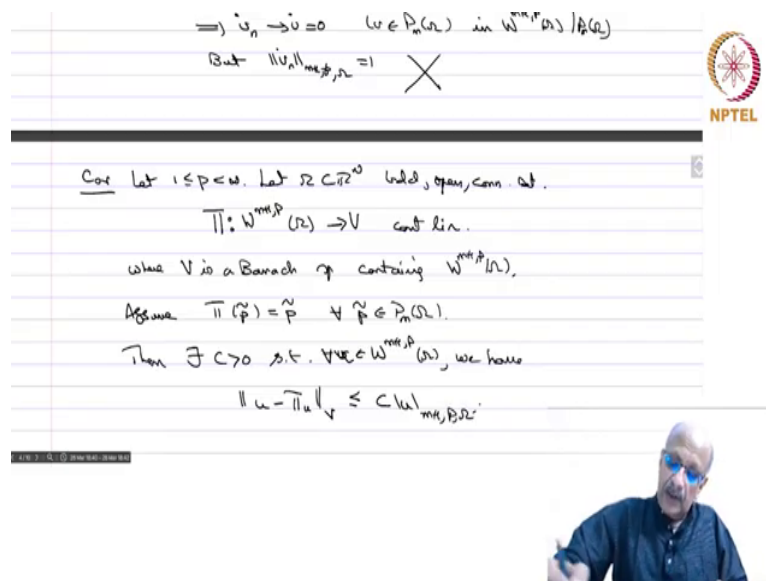 ⟹ u̇ₙ → u̇ = 0 (u ∈ Pₘ(Ω)) in W^{m+1,p}(Ω)/Pₘ(Ω)
But ‖u̇ₙ‖_{m+1,p,Ω} = 1
NPTEL
Cor Let 1 ≤ p < ∞. Let Ω ⊂ ℝᴺ bdd, open, conn. set.
Π : W^{m+1,p}(Ω) → V cont lin.
where V is a Banach sp containing W^{m+1,p}(Ω).
Assume Π(p̃) = p̃ ∀ p̃ ∈ Pₘ(Ω).
Then ∃ C>0 s.t. ∀ u ∈ W^{m+1,p}(Ω), we have
‖u − Πu‖_V ≤ C|u|_{m+1,p,Ω}.